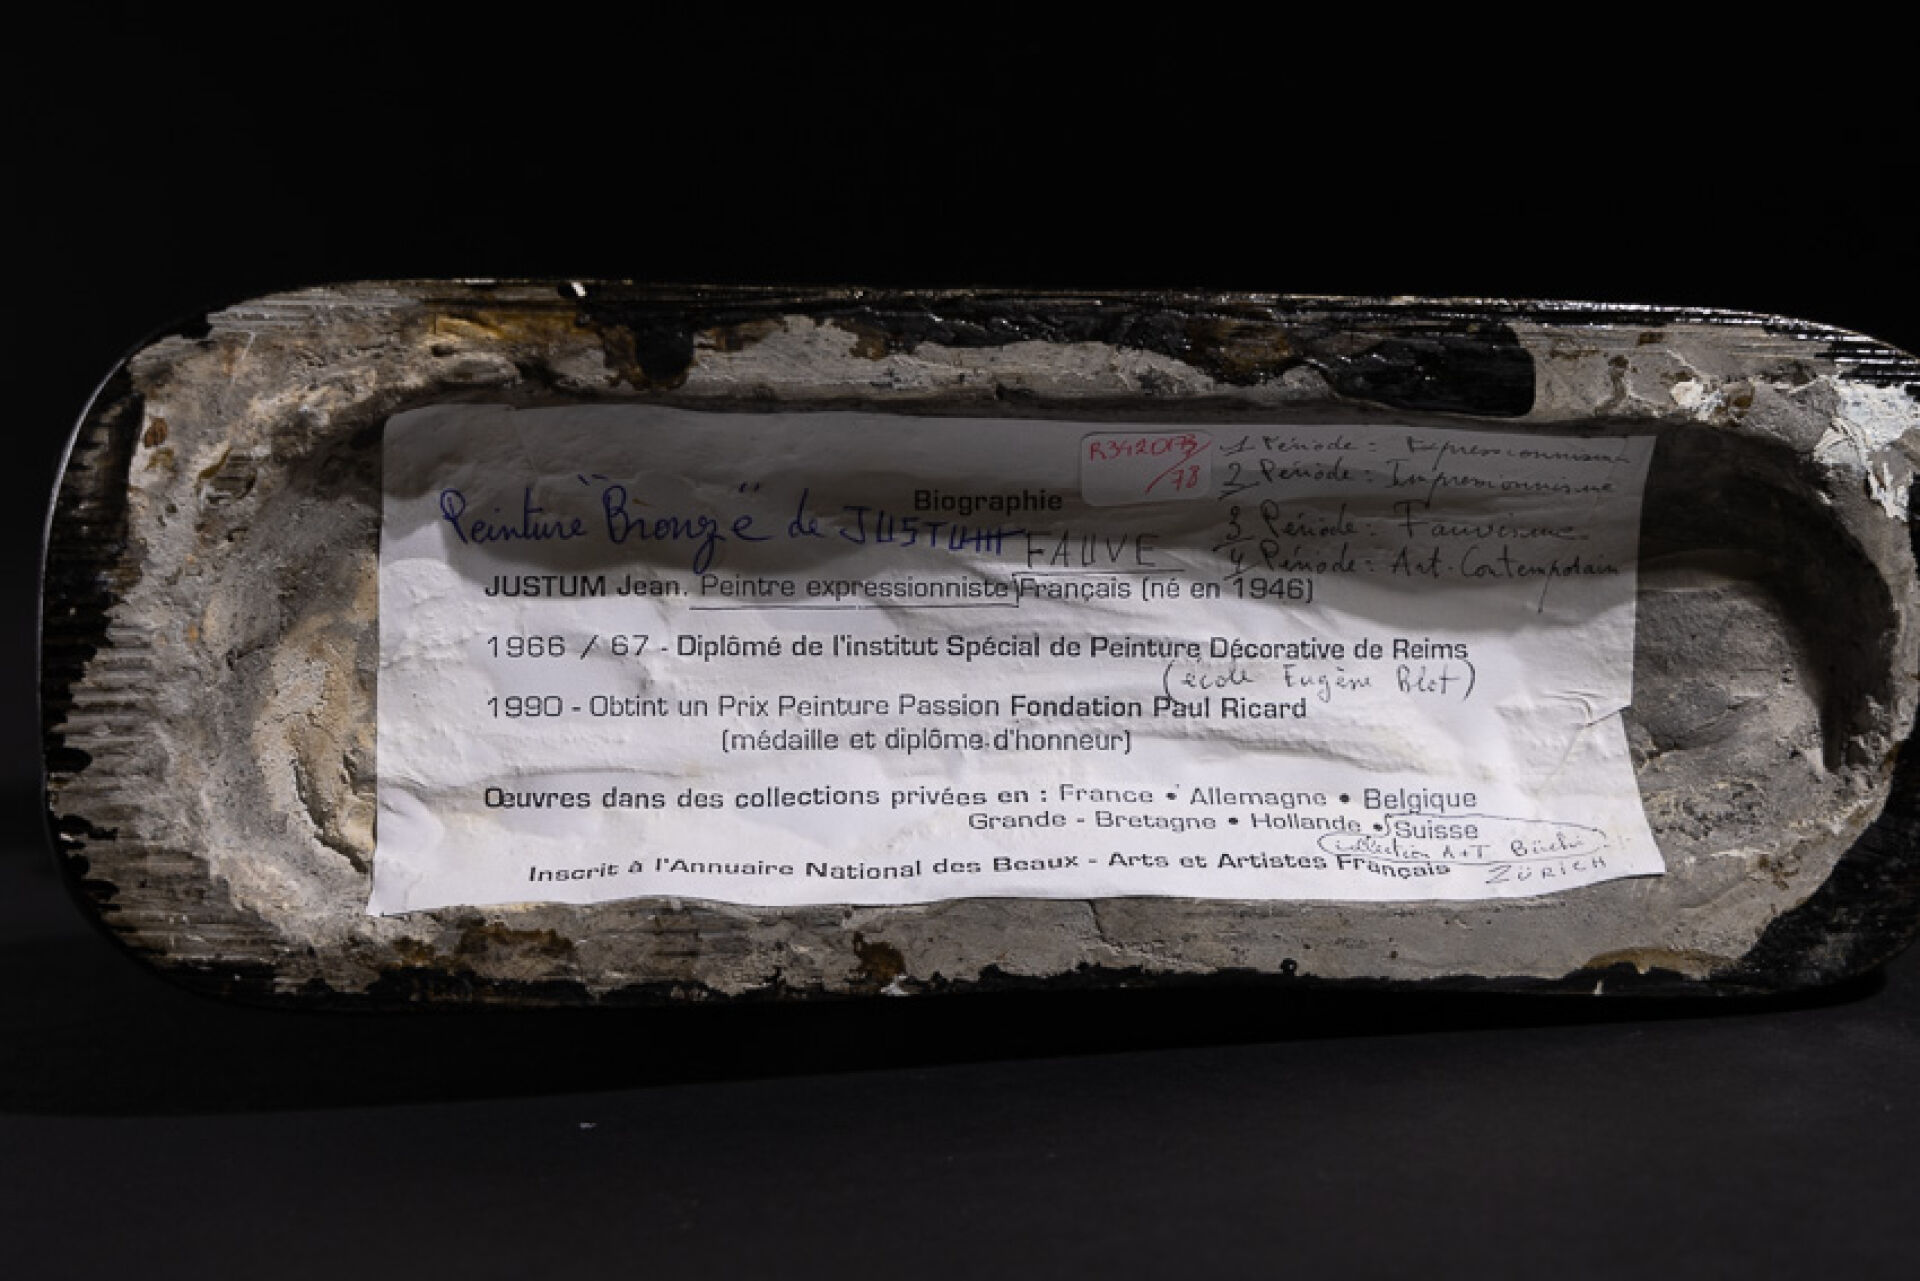 R342073
/78
1 Période : Expressionnisme
2 Période : Impressionnisme
3 Période : Fauvisme
4 Période : Art. Contemporain
Biographie
Peinture "Bronze" de JUSTUM
FAUVE
JUSTUM Jean. Peintre expressionniste Français (né en 1946)
1966 / 67 - Diplômé de l'institut Spécial de Peinture Décorative de Reims
(école Eugène Blot)
1990 - Obtint un Prix Peinture Passion Fondation Paul Ricard
(médaille et diplôme d'honneur)
Œuvres dans des collections privées en : France • Allemagne • Belgique
Grande - Bretagne • Hollande • Suisse
collection A+T Büchi
ZÜRICH
Inscrit à l'Annuaire National des Beaux - Arts et Artistes Français